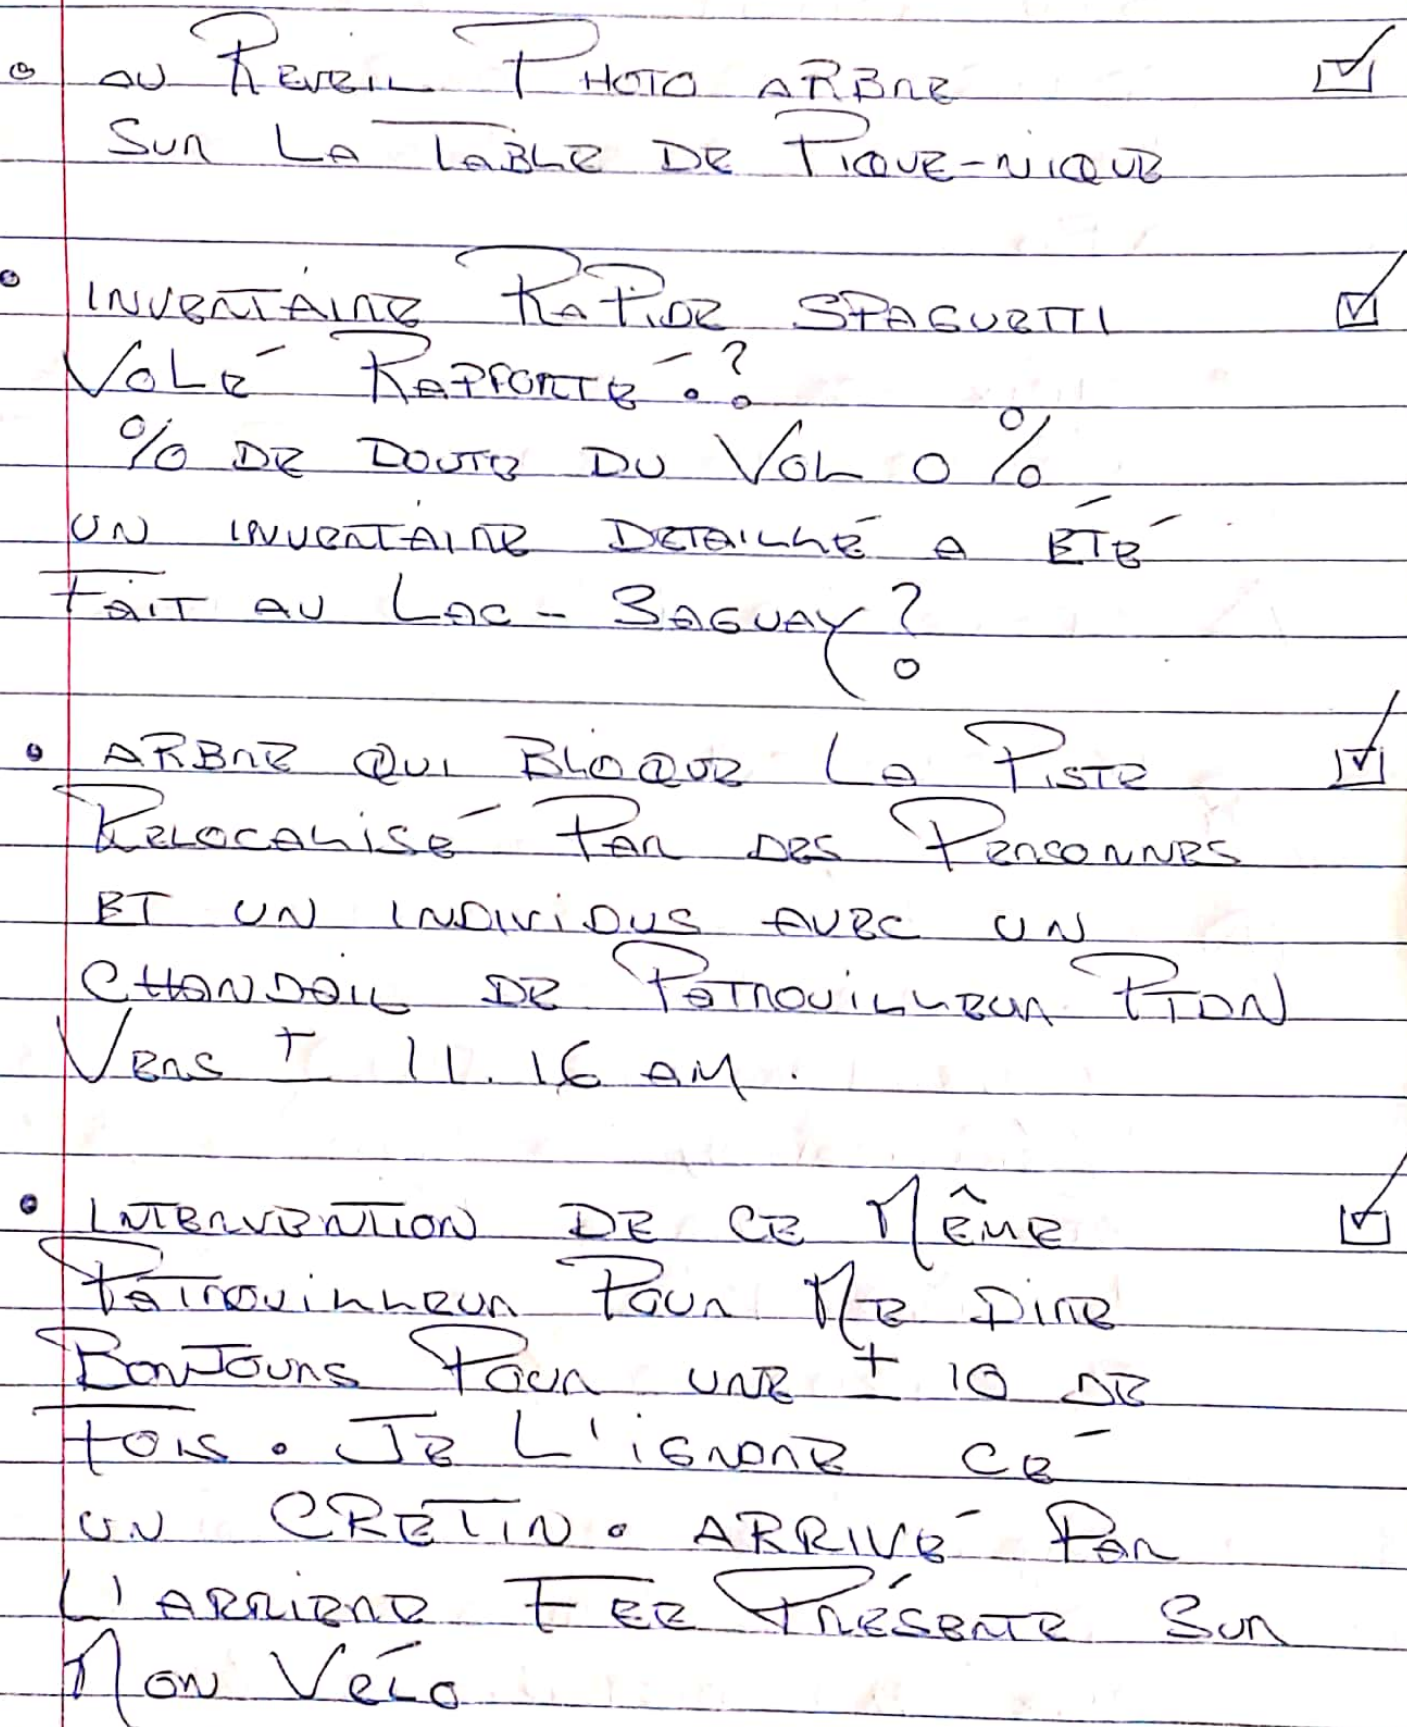 • AU REVEIL PHOTO ARBRE ☑
SUR LA TABLE DE PIQUE-NIQUE
• INVENTAIRE RAPIDE SPAGUETTI ☑
VOLÉ RAPPORTÉ . ?
% DE DOUTE DU VOL 0 %
UN INVENTAIRE DETAILLÉ A ÉTÉ
FAIT AU LAC-SAGUAY ?
• ARBRE QUI BLOQUE LA PISTE ☑
RELOCALISÉ PAR DES PERSONNES
ET UN INDIVIDUS AVEC UN
CHANDAIL DE PATROUILLEUR PTDN
VERS ± 11.16 AM.
• INTERVENTION DE CE MÊME ☑
PATROUILLEUR POUR ME DIRE
BONJOURS POUR UNE ± 10 DE
FOIS. JE L'IGNORE CÉ
UN CRETIN. ARRIVÉ PAR
L'ARRIERE FEE PRÉSENTE SUR
MON VÉLO